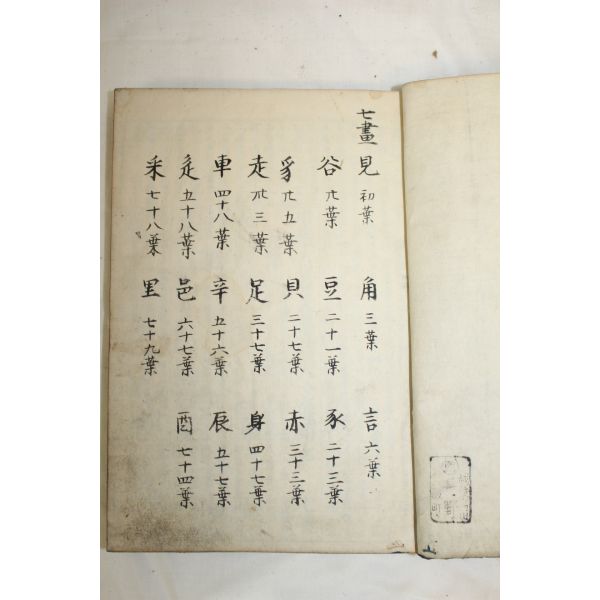 七畫
見 初葉 角 三葉 言 六葉
谷 卄葉 豆 二十一葉 豕 二十三葉
豸 卄五葉 貝 二十七葉 赤 三十三葉
走 卅三葉 足 三十七葉 身 四十七葉
車 四十八葉 辛 五十六葉 辰 五十七葉
辵 五十八葉 邑 六十七葉 酉 七十四葉
釆 七十八葉 里 七十九葉